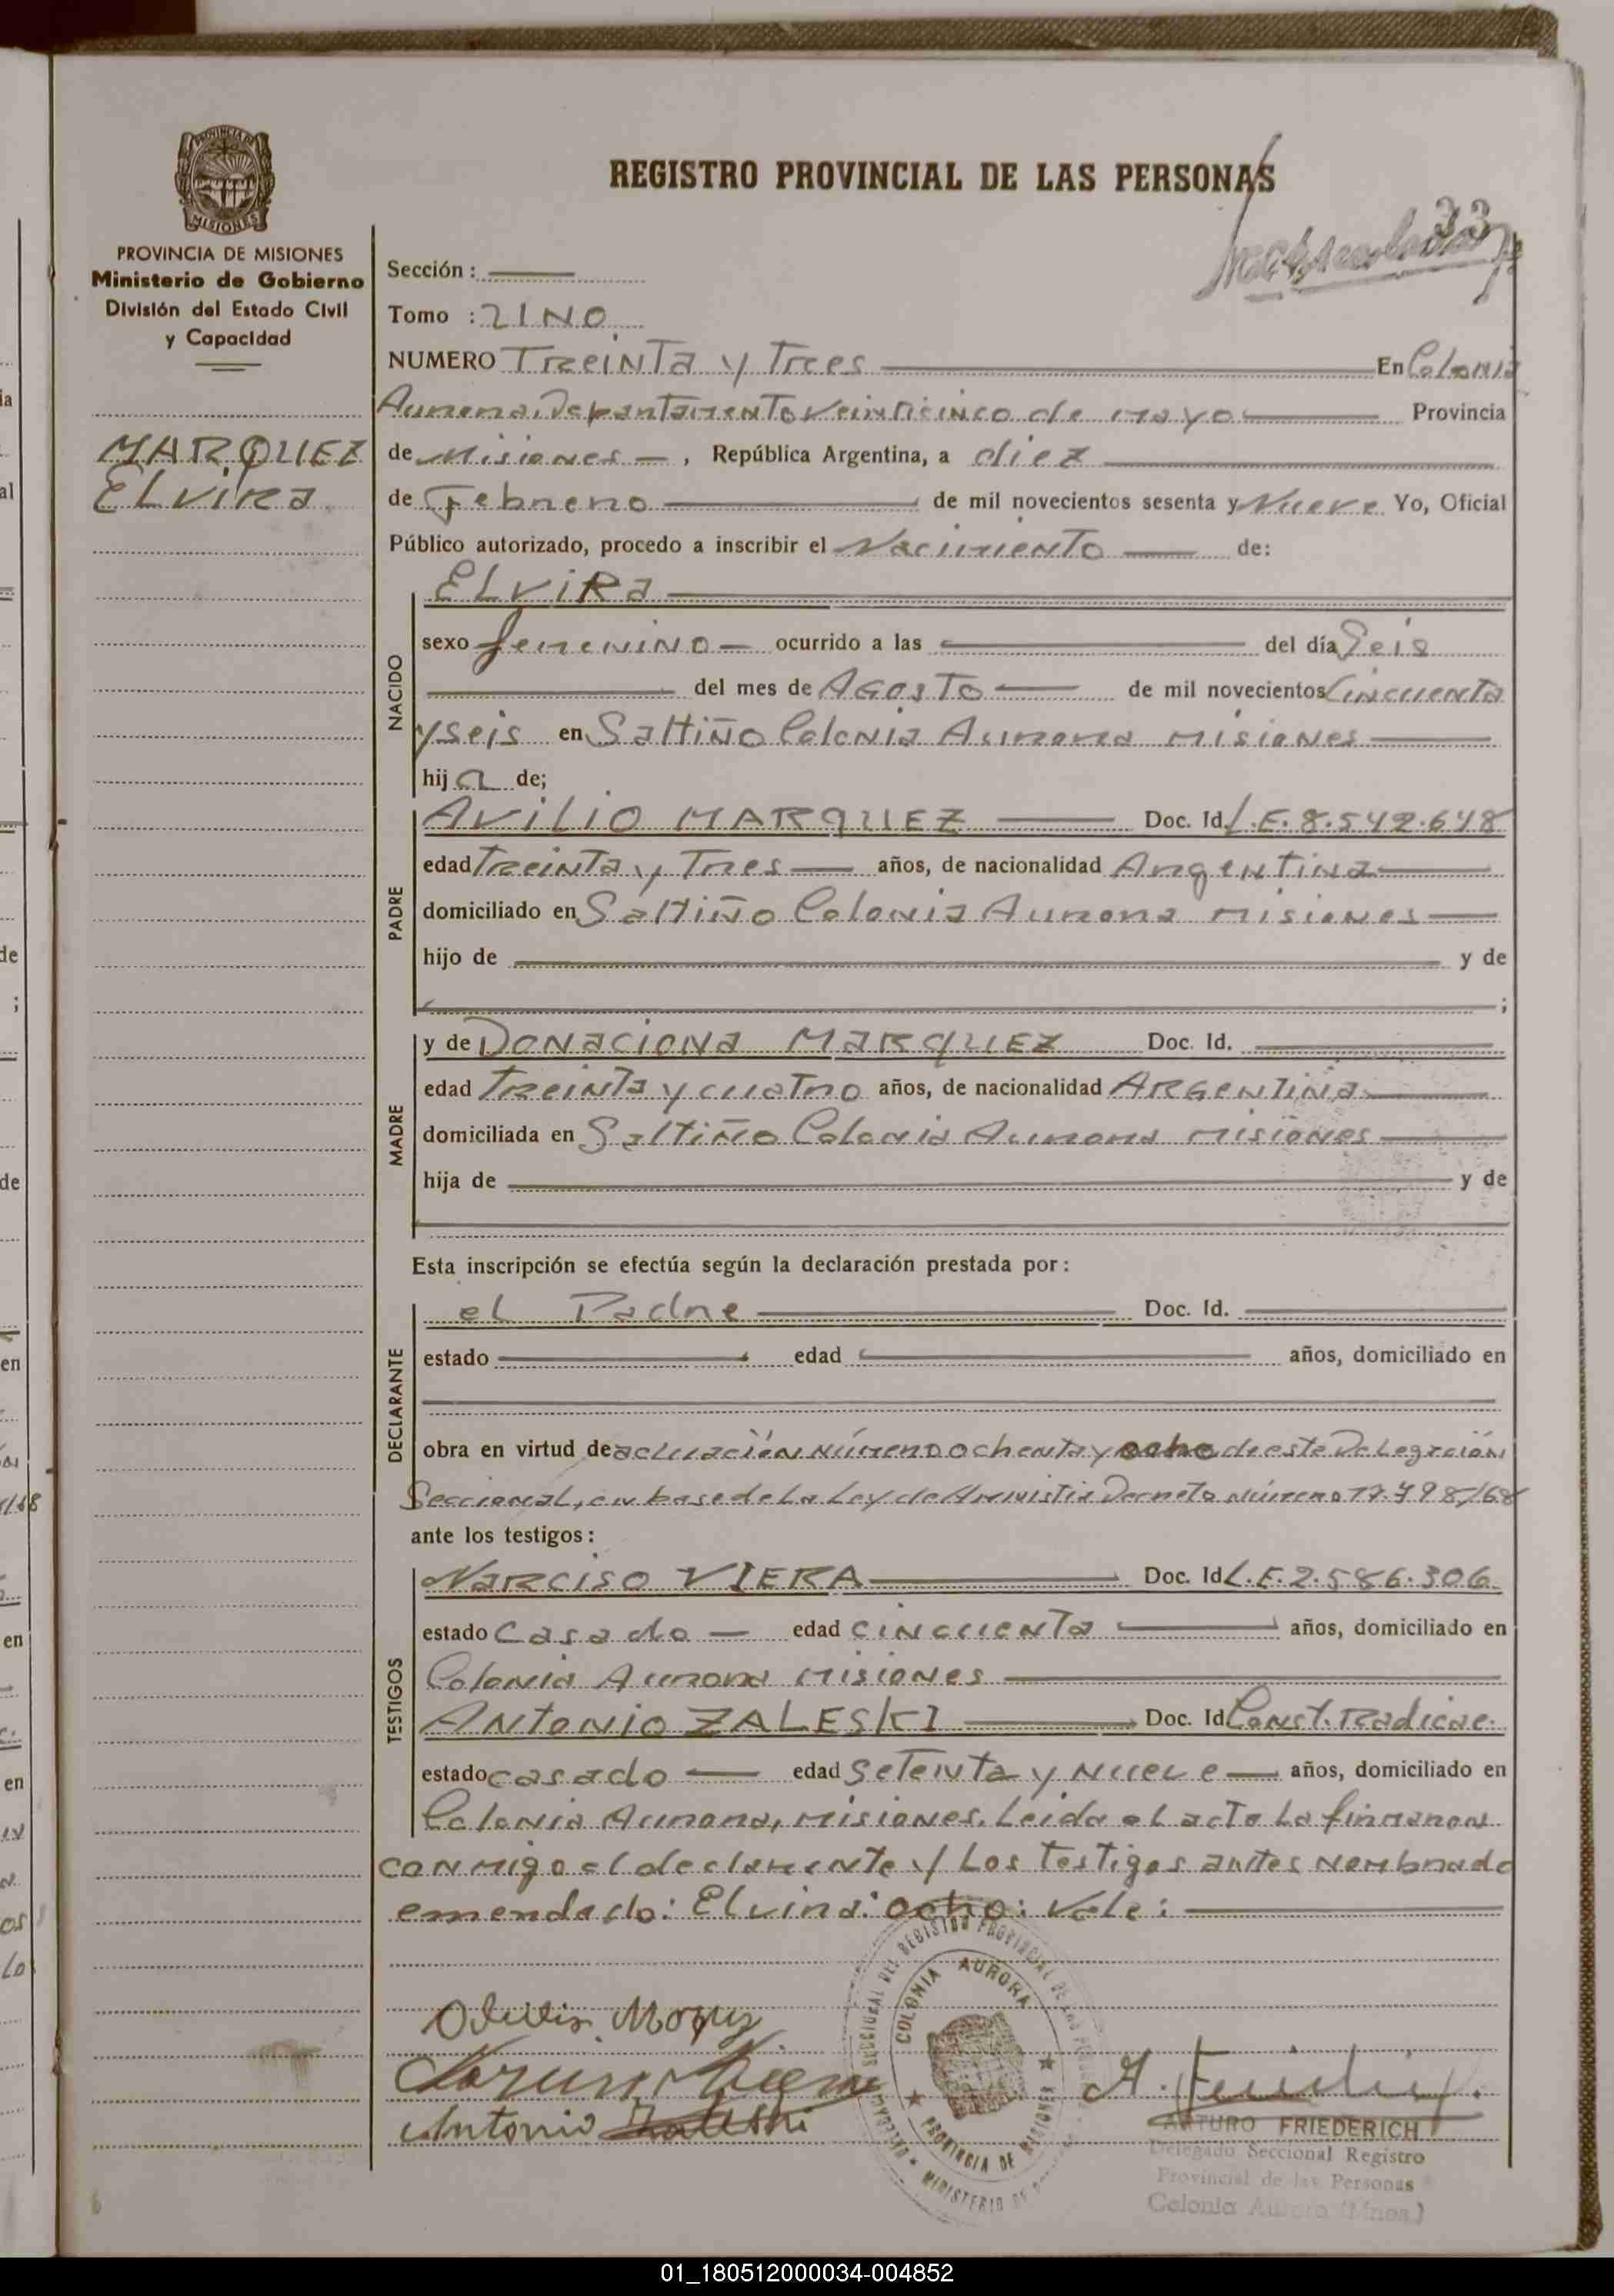 REGISTRO PROVINCIAL DE LAS PERSONAS
33
PROVINCIA DE
MISIONES
PROVINCIA DE MISIONES
Ministerio de Gobierno
División del Estado Civil
y Capacidad
MARQUEZ
ELVIRA
Sección :
Tomo : UNO
NUMERO Treinta y Tres En Colonia
Aurora, Departamento Veinticinco de mayo Provincia
de Misiones , República Argentina, a diez
de Febrero de mil novecientos sesenta y Nueve Yo, Oficial
Público autorizado, procedo a inscribir el Nacimiento de:
NACIDO
ELVIRA
sexo femenino ocurrido a las del día Seis
del mes de AGOSTO de mil novecientos Cincuenta
y seis en Saltiño Colonia Aurora Misiones
hija de;
PADRE
AVILIO MARQUEZ Doc. Id. L.E. 8.542.648
edad Treinta y Tres años, de nacionalidad Argentina
domiciliado en Saltiño Colonia Aurora Misiones
hijo de y de
;
MADRE
y de DONACIONA MARQUEZ Doc. Id.
edad Treinta y cuatro años, de nacionalidad ARGENTINA
domiciliada en Saltiño Colonia Aurora Misiones
hija de y de
Esta inscripción se efectúa según la declaración prestada por:
DECLARANTE
el Padre Doc. Id.
estado edad años, domiciliado en
obra en virtud de actuación número ochenta y ocho de este Delegación
Seccional, en base de La Ley de Amnistia Decreto número 17.498/68
ante los testigos:
TESTIGOS
NARCISO VIERA Doc. Id L.E. 2.586.306
estado Casado edad cincuenta años, domiciliado en
Colonia Aurora Misiones
ANTONIO ZALESKI Doc. Id Const. Radicac.
estado casado edad setenta y nueve años, domiciliado en
Colonia Aurora, Misiones. Leida el acta La firmaron
conmigo el declarante y Los testigos antes nombrado
emendado: Elvira: ocho: Vale:
Antonio Zaleski
COLONIA AURORA
PROVINCIA DE MISIONES
ARTURO FRIEDERICH
Delegado Seccional Registro
Provincial de las Personas
Colonia Aurora (Mnes.)
01_180512000034-004852